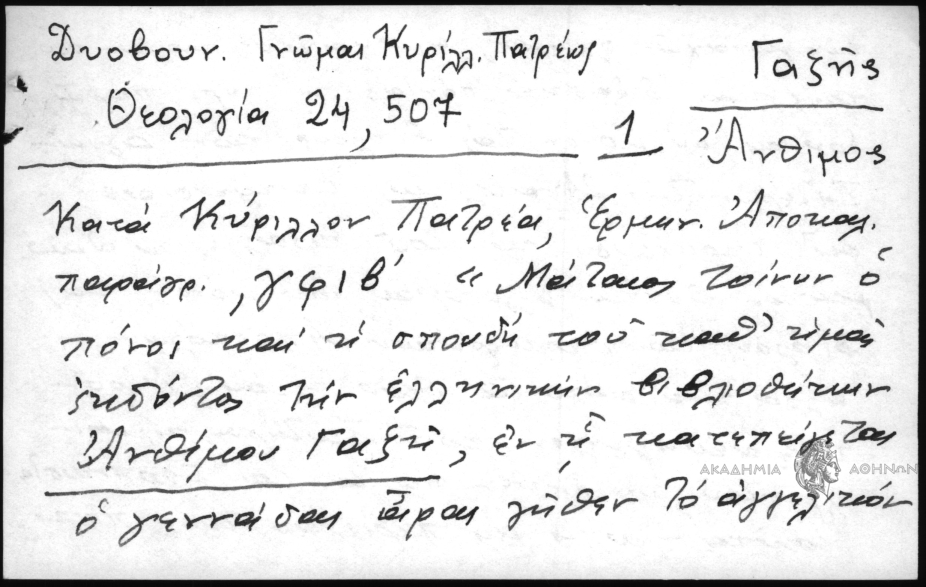 Δυοβουν. Γνῶμαι Κυρίλλ. Πατρέως
Θεολογία 24, 507
1
Γαζῆς
Ἄνθιμος
Κατά Κύριλλον Πατρέα, Ἑρμην. Ἀποκαλ.
παραγρ. ,γφιβ' « Μάταιος τοίνυν ὁ
πόνος καί ἡ σπουδή τοῦ καθ' ἡμᾶς
ἐκδόντος τήν ἑλληνικήν βιβλιοθήκην
Ἀνθίμου Γαζῆ, ἐν ᾗ κατεπείγεται
ὁ γεννάδας ἆραι γῆθεν τό ἀγγελικόν
ΑΚΑΔΗΜΙΑ ΑΘΗΝΩΝ